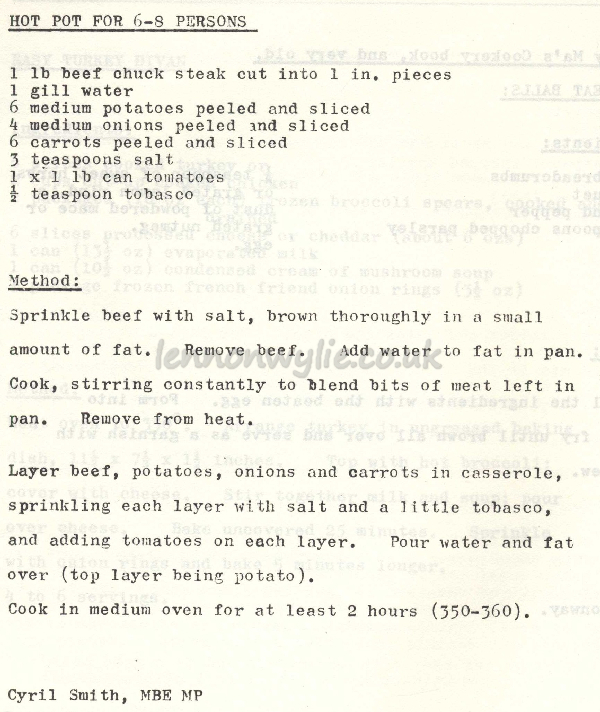 HOT POT FOR 6-8 PERSONS
1 lb beef chuck steak cut into 1 in. pieces
1 gill water
6 medium potatoes peeled and sliced
4 medium onions peeled and sliced
6 carrots peeled and sliced
3 teaspoons salt
1 x 1 lb can tomatoes
½ teaspoon tobasco
Method:
Sprinkle beef with salt, brown thoroughly in a small
amount of fat. Remove beef. Add water to fat in pan.
lennonwylie.co.uk
Cook, stirring constantly to blend bits of meat left in
pan. Remove from heat.
Layer beef, potatoes, onions and carrots in casserole,
sprinkling each layer with salt and a little tobasco,
and adding tomatoes on each layer. Pour water and fat
over (top layer being potato).
Cook in medium oven for at least 2 hours (350-360).
Cyril Smith, MBE MP